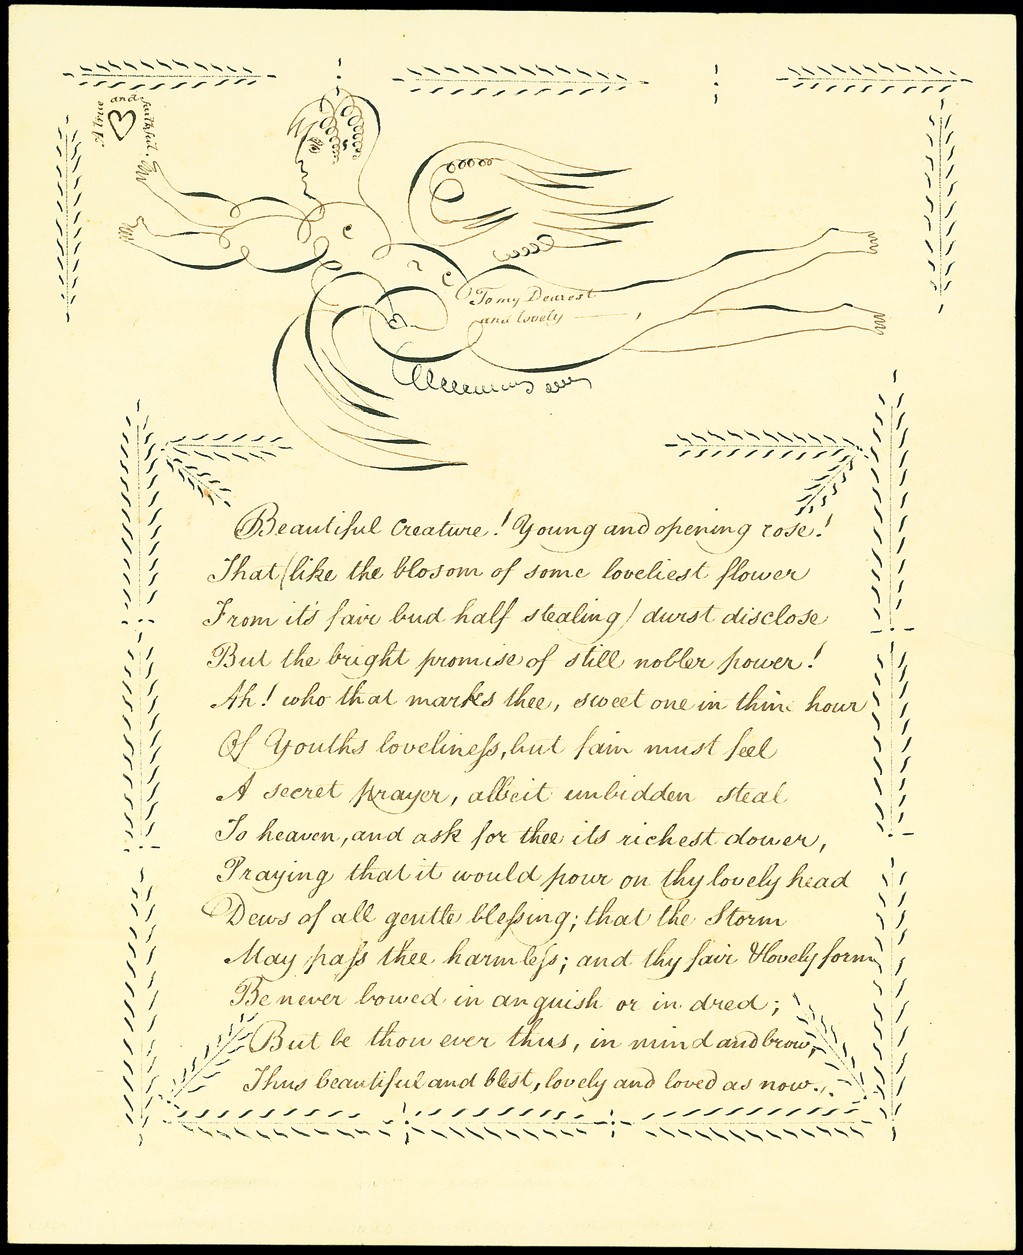 A true and faithful.
To my Dearest
and lovely ———,
Beautiful Creature! Young and opening rose!
That (like the blosom of some loveliest flower
From it's fair bud half stealing) durst disclose
But the bright promise of still nobler power!
Ah! who that marks thee, sweet one in thine hour
Of Youths lovelineſs, but fain must feel
A secret prayer, albeit unbidden steal
To heaven, and ask for thee its richest dower,
Praying that it would pour on thy lovely head
Dews of all gentle bleſsing; that the Storm
May paſs thee harmleſs; and thy fair & lovely form
Be never bowed in anguish or in dred;
But be thou ever thus, in mind and brow,
Thus beautiful and blest, lovely and loved as now.